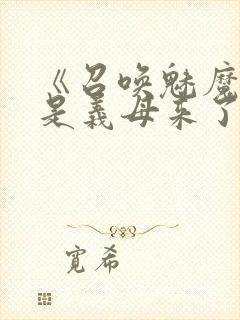 《召唤魅魔
是义母来了
宽希